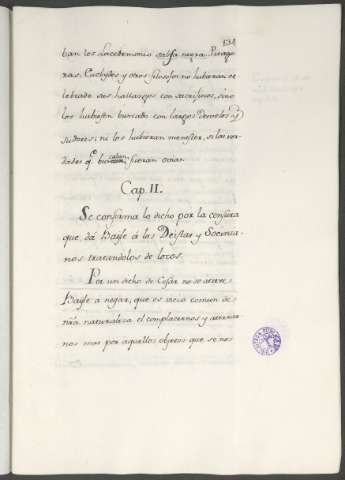 134
ban los Lacedemonios
ras, Euclydes y otros filosofos no hubieran ce
lebrado sus hallazgos con sacrificios, sino
los hubiesen buscado con largos desvelos y
sudores; ni los hubieran menester, si las ver
dades q.e buscaban fueran ociosas.
Cap. II.
Se confirma lo dicho por la censura
que dá Bayle á los Deistas y Socinia-
nos tratandolos de locos.
Por un dicho de Cesar no se atreve
Bayle a negar, que es vicio comun de
nrã naturaleza el complacernos y aterrar
nos mas por aquellos objetos que se nos